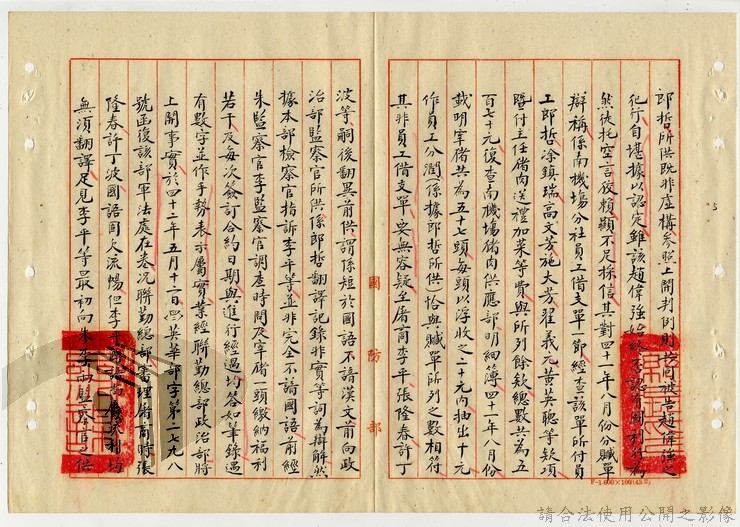 郎哲所供既非虛構參照上開判例則共同被告趙偉強之
犯行自堪據以認定雖該趙偉強始終否認有圖利行為
然徒托空言狡賴顯不足採信其對四十一年八月份分贓單
辯稱係南機場分社員工借支單一節經查該單所付員
工郎哲涂鎮瑞高文芳施大芳翟義元黃英聰等欵項
暨付主任豬肉送禮加菜等費與所列餘欵總數共為五
百七十元復查南機場豬肉供應部明細簿四十一年八月份
載明宰豬共為五十七頭每頭以浮收之二十元內抽出十元
作員工分潤係據郎哲所供恰與贓單所列之數相符
其非員工借支單要無容疑至屠商李平張隆春許丁
波等嗣後翻異前供謂係短於國語不諳漢文前向政
治部監察官所供係郎哲翻譯記錄非實等詞為辯解然
據本部檢察官指訴李平等並非完全不諳國語前經
朱監察官李監察官調查時問及宰豬一頭繳納福利
若干及每次簽訂合約日期與進行經過均答如筆錄遇
有數字並作手勢表示屬實業經聯勤總部政治部將
上開事實於四十二年五月十二日四英華部字第二七九八
號函復該部軍法處在卷況聯勤總部審理屠商時張
隆春許丁波國語固欠流暢但李平
無須翻譯足見李平等最初向朱李兩監察官之供
國防部
F-1.600×100(43.)
請合法使用公開之影像